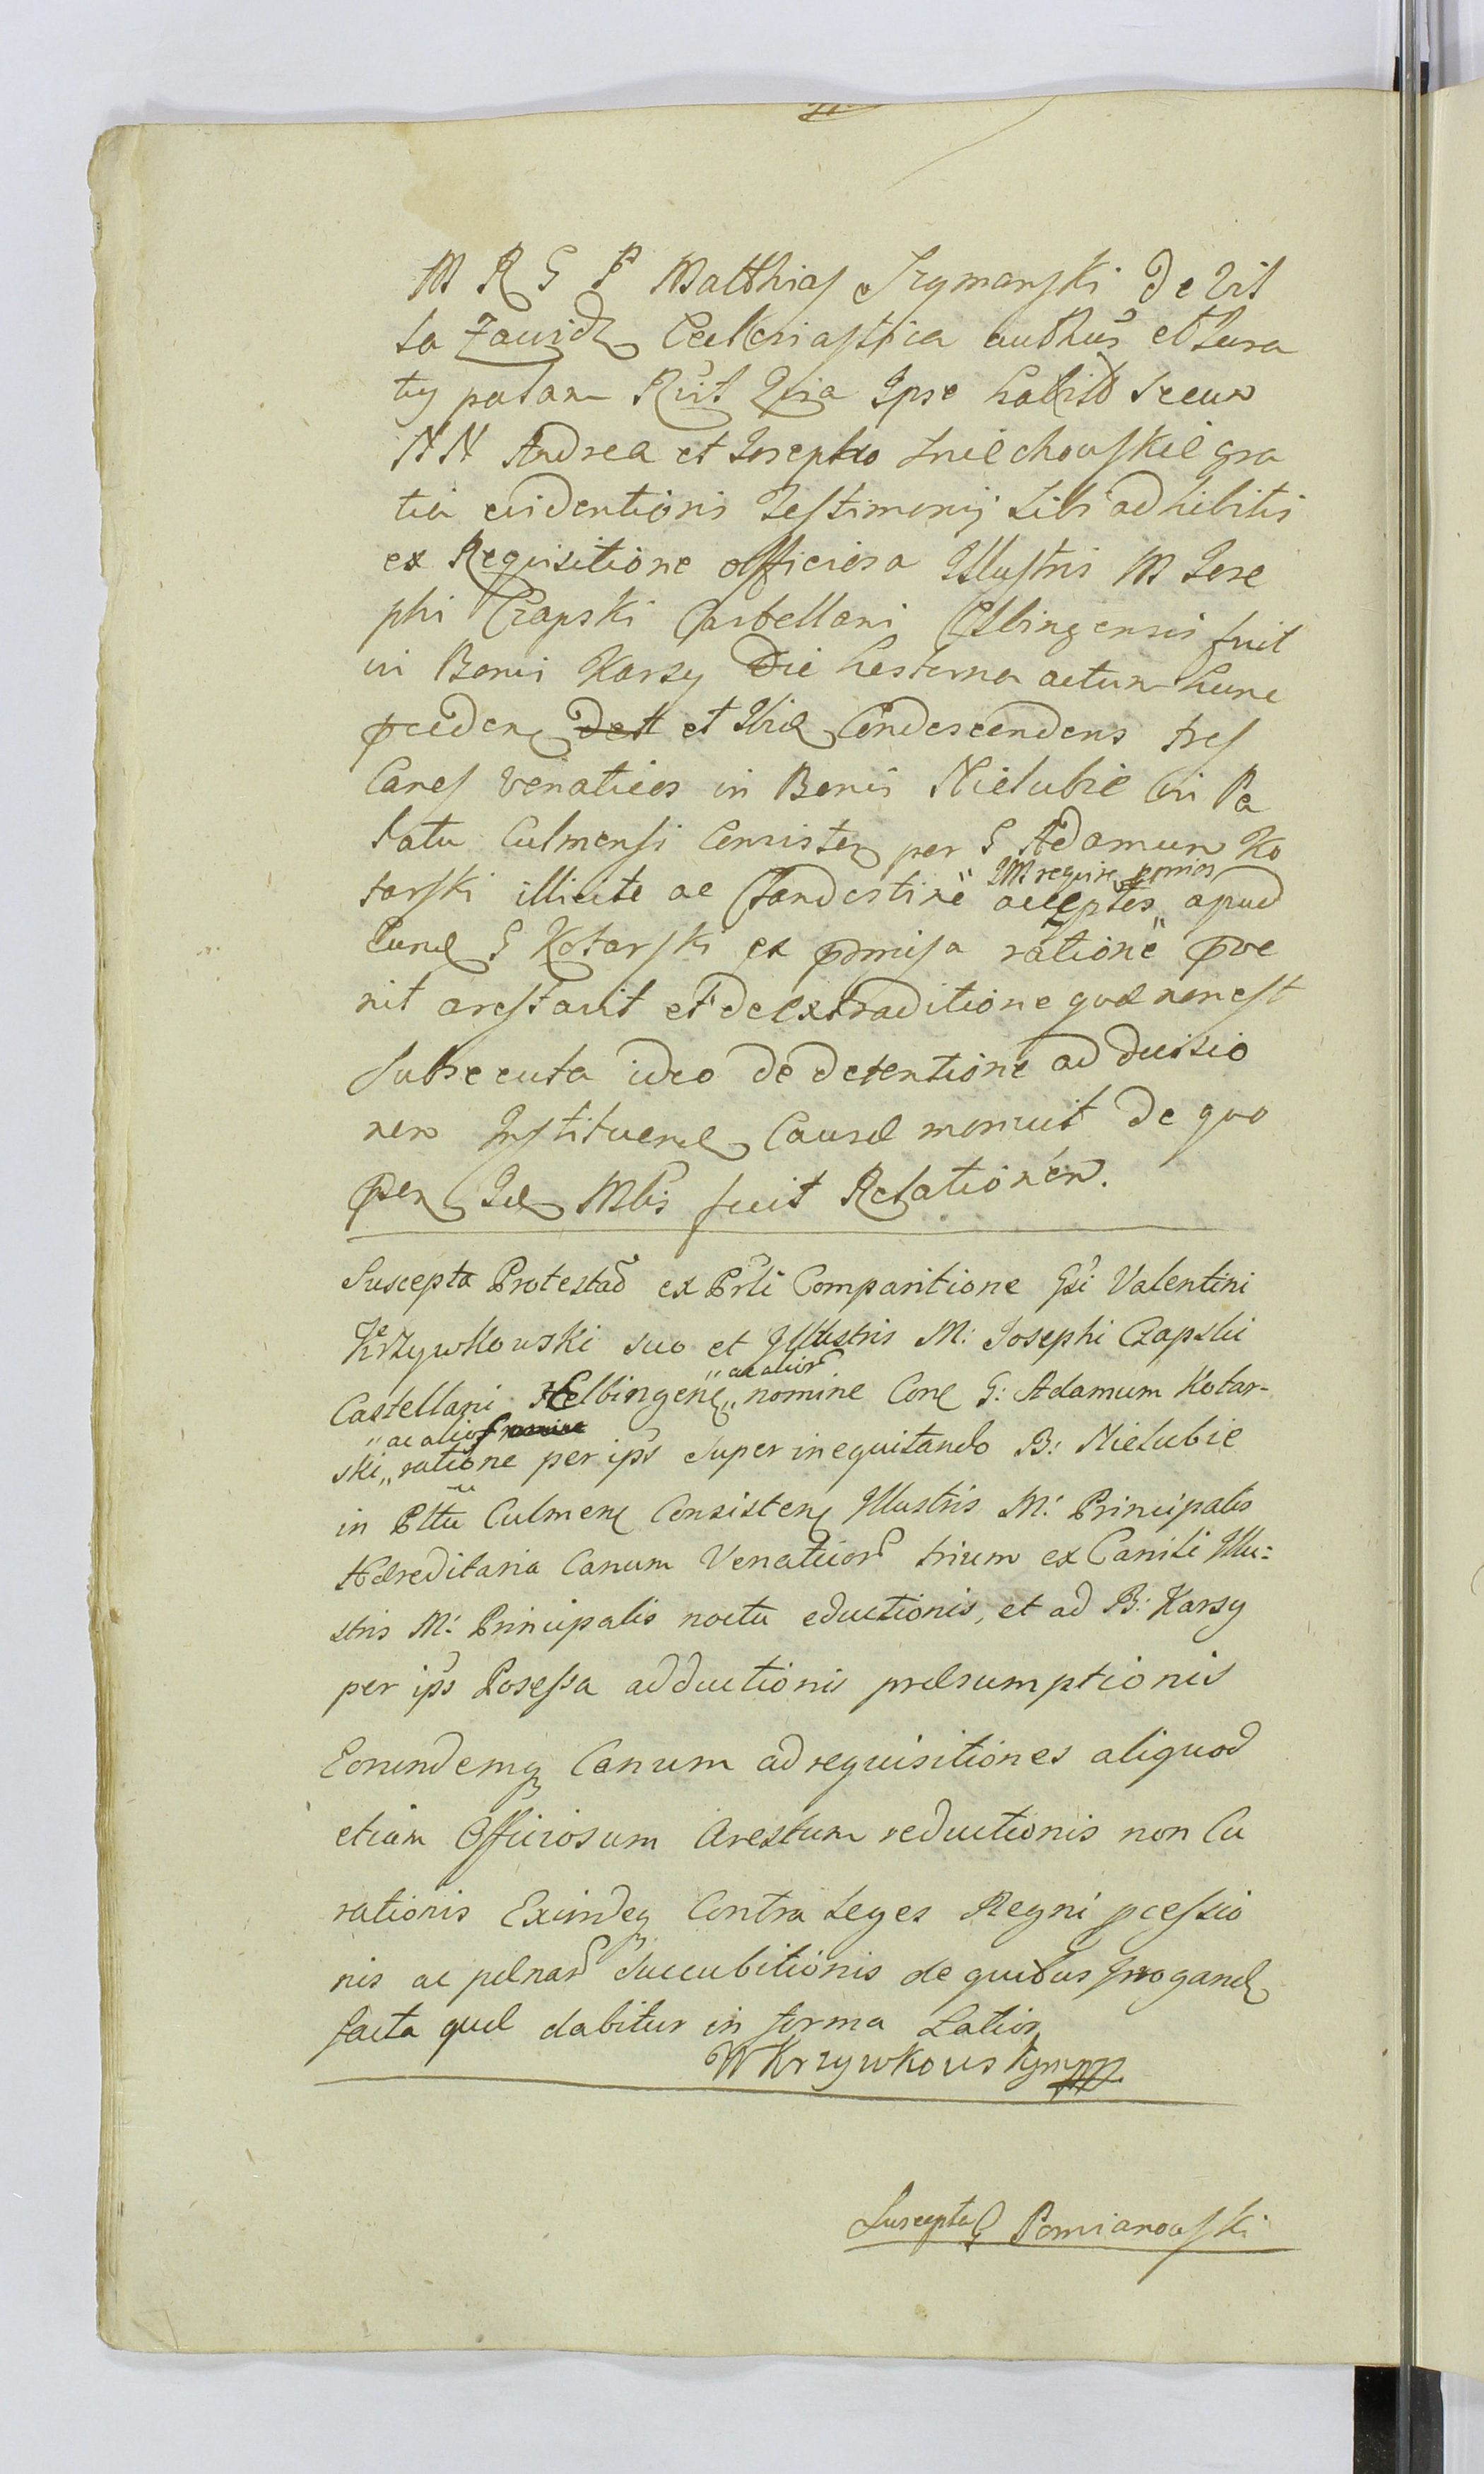 M R G P Matthias Szymanski de Vil
la Zawidz Ecclesiastica authus et Jura
tus palam Rcit Quia Ipse habitis secum
NN Andrea et Josepho Sniechowskie gra
tia evidentioris Testimonij sibi adhibitis
ex Requisitione officiosa Illustris M Jose
phi Czapski Castellani Elbingensis fuit
in Bonis Karsy Die hesterna actum hunc
pceden et Ibid Condescendens tres
Canes venaticos in Bonis Nielubie in Pa
latu Culmensi Consisten per G Adamum Ko
tarski illicite ac Clandestine acceptos apud
Eund G Kotarski ex pmissa ratione
nit arestavit et de extraditione quæ non est
Subsecuta ideo de detentione ad decisio
nem Instituend Causæ monuit de quo
fecit Relationem.
Suscepta Protestao ex Prli Comparitione Gsi Valentini
Krzywkowski suo et Illustris M: Josephi Czapski
"ac alior
Castellani Elbingen "nomine Con G: Adamum Kotar-
"ac alios
ski "ratione per ips Super inequitando B: Nielubie
in Pltu Culmen Consisten Illustris M: Principalis
Hæreditaria Canum Venaticor trium ex Canili Illu:
stris M: Principalis noctu eductionis, et ad B: Karsy
per ips Possessa adductionis præsumptionis
Eorundemq Canum ad requisitiones aliquod
etiam Officiosum Arestum reductionis non Cu
rationis Exindeq Contra Leges Regni pcessio
nis ac pænar Succubitionis de quibus Irrogand
facta quæ dabitur in forma Latior
W Krzywkowski mpp
Suscepta G Pomianowski